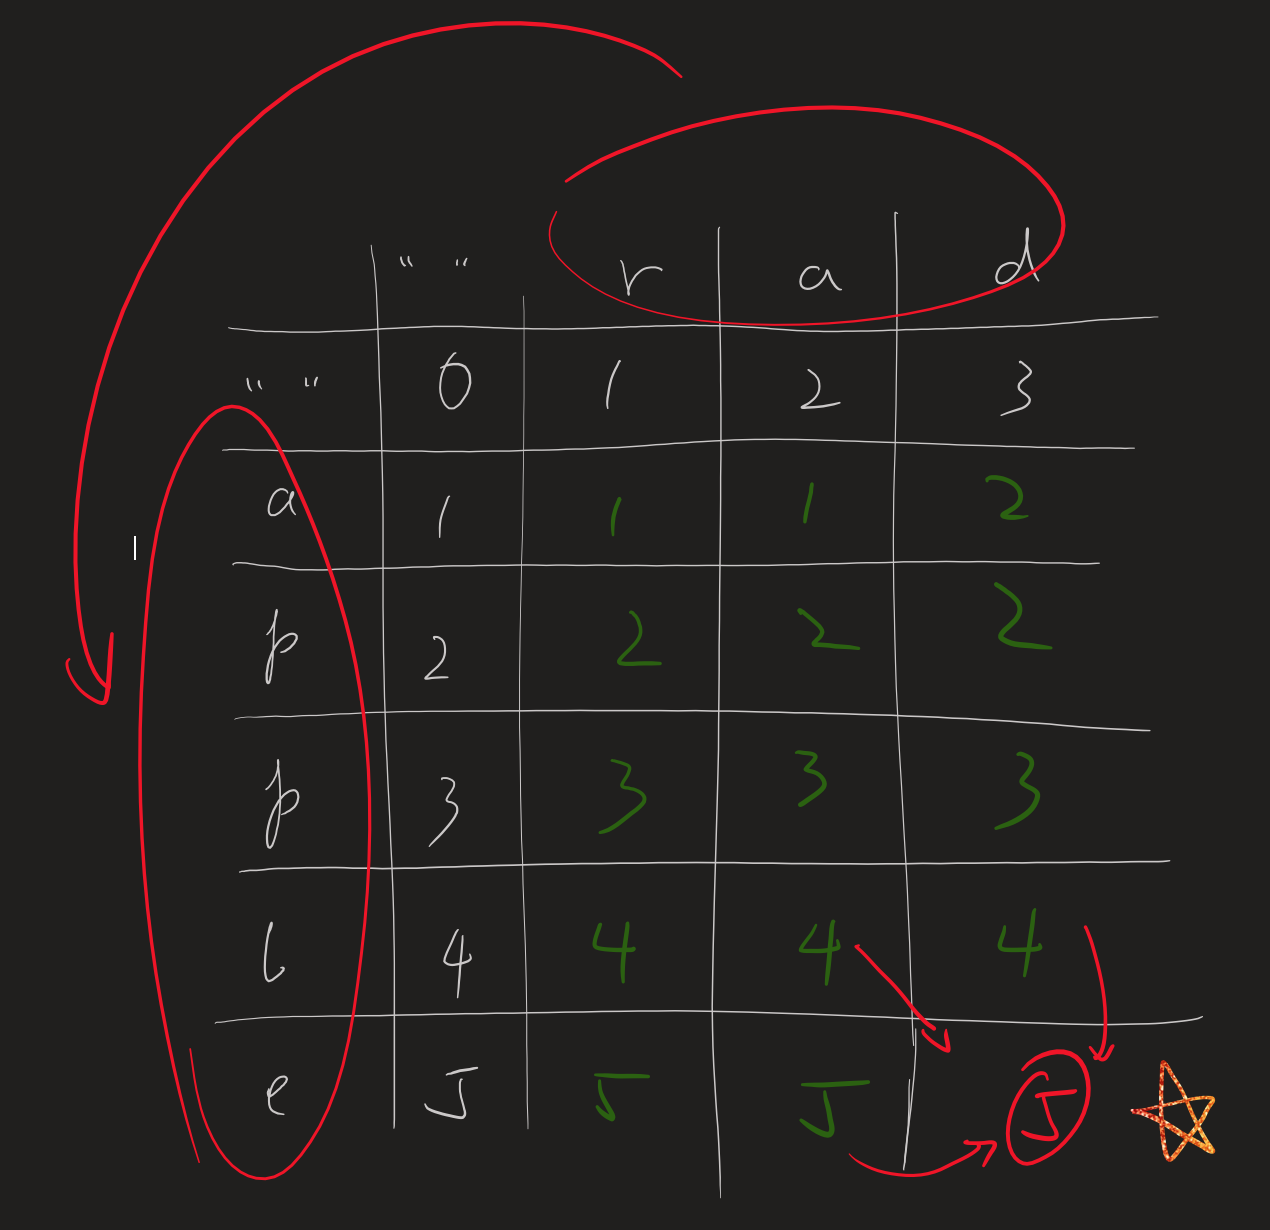 " " r a d
" " 0 1 2 3
a 1 1 1 2
p 2 2 2 2
p 3 3 3 3
l 4 4 4 4
e 5 5 5 5